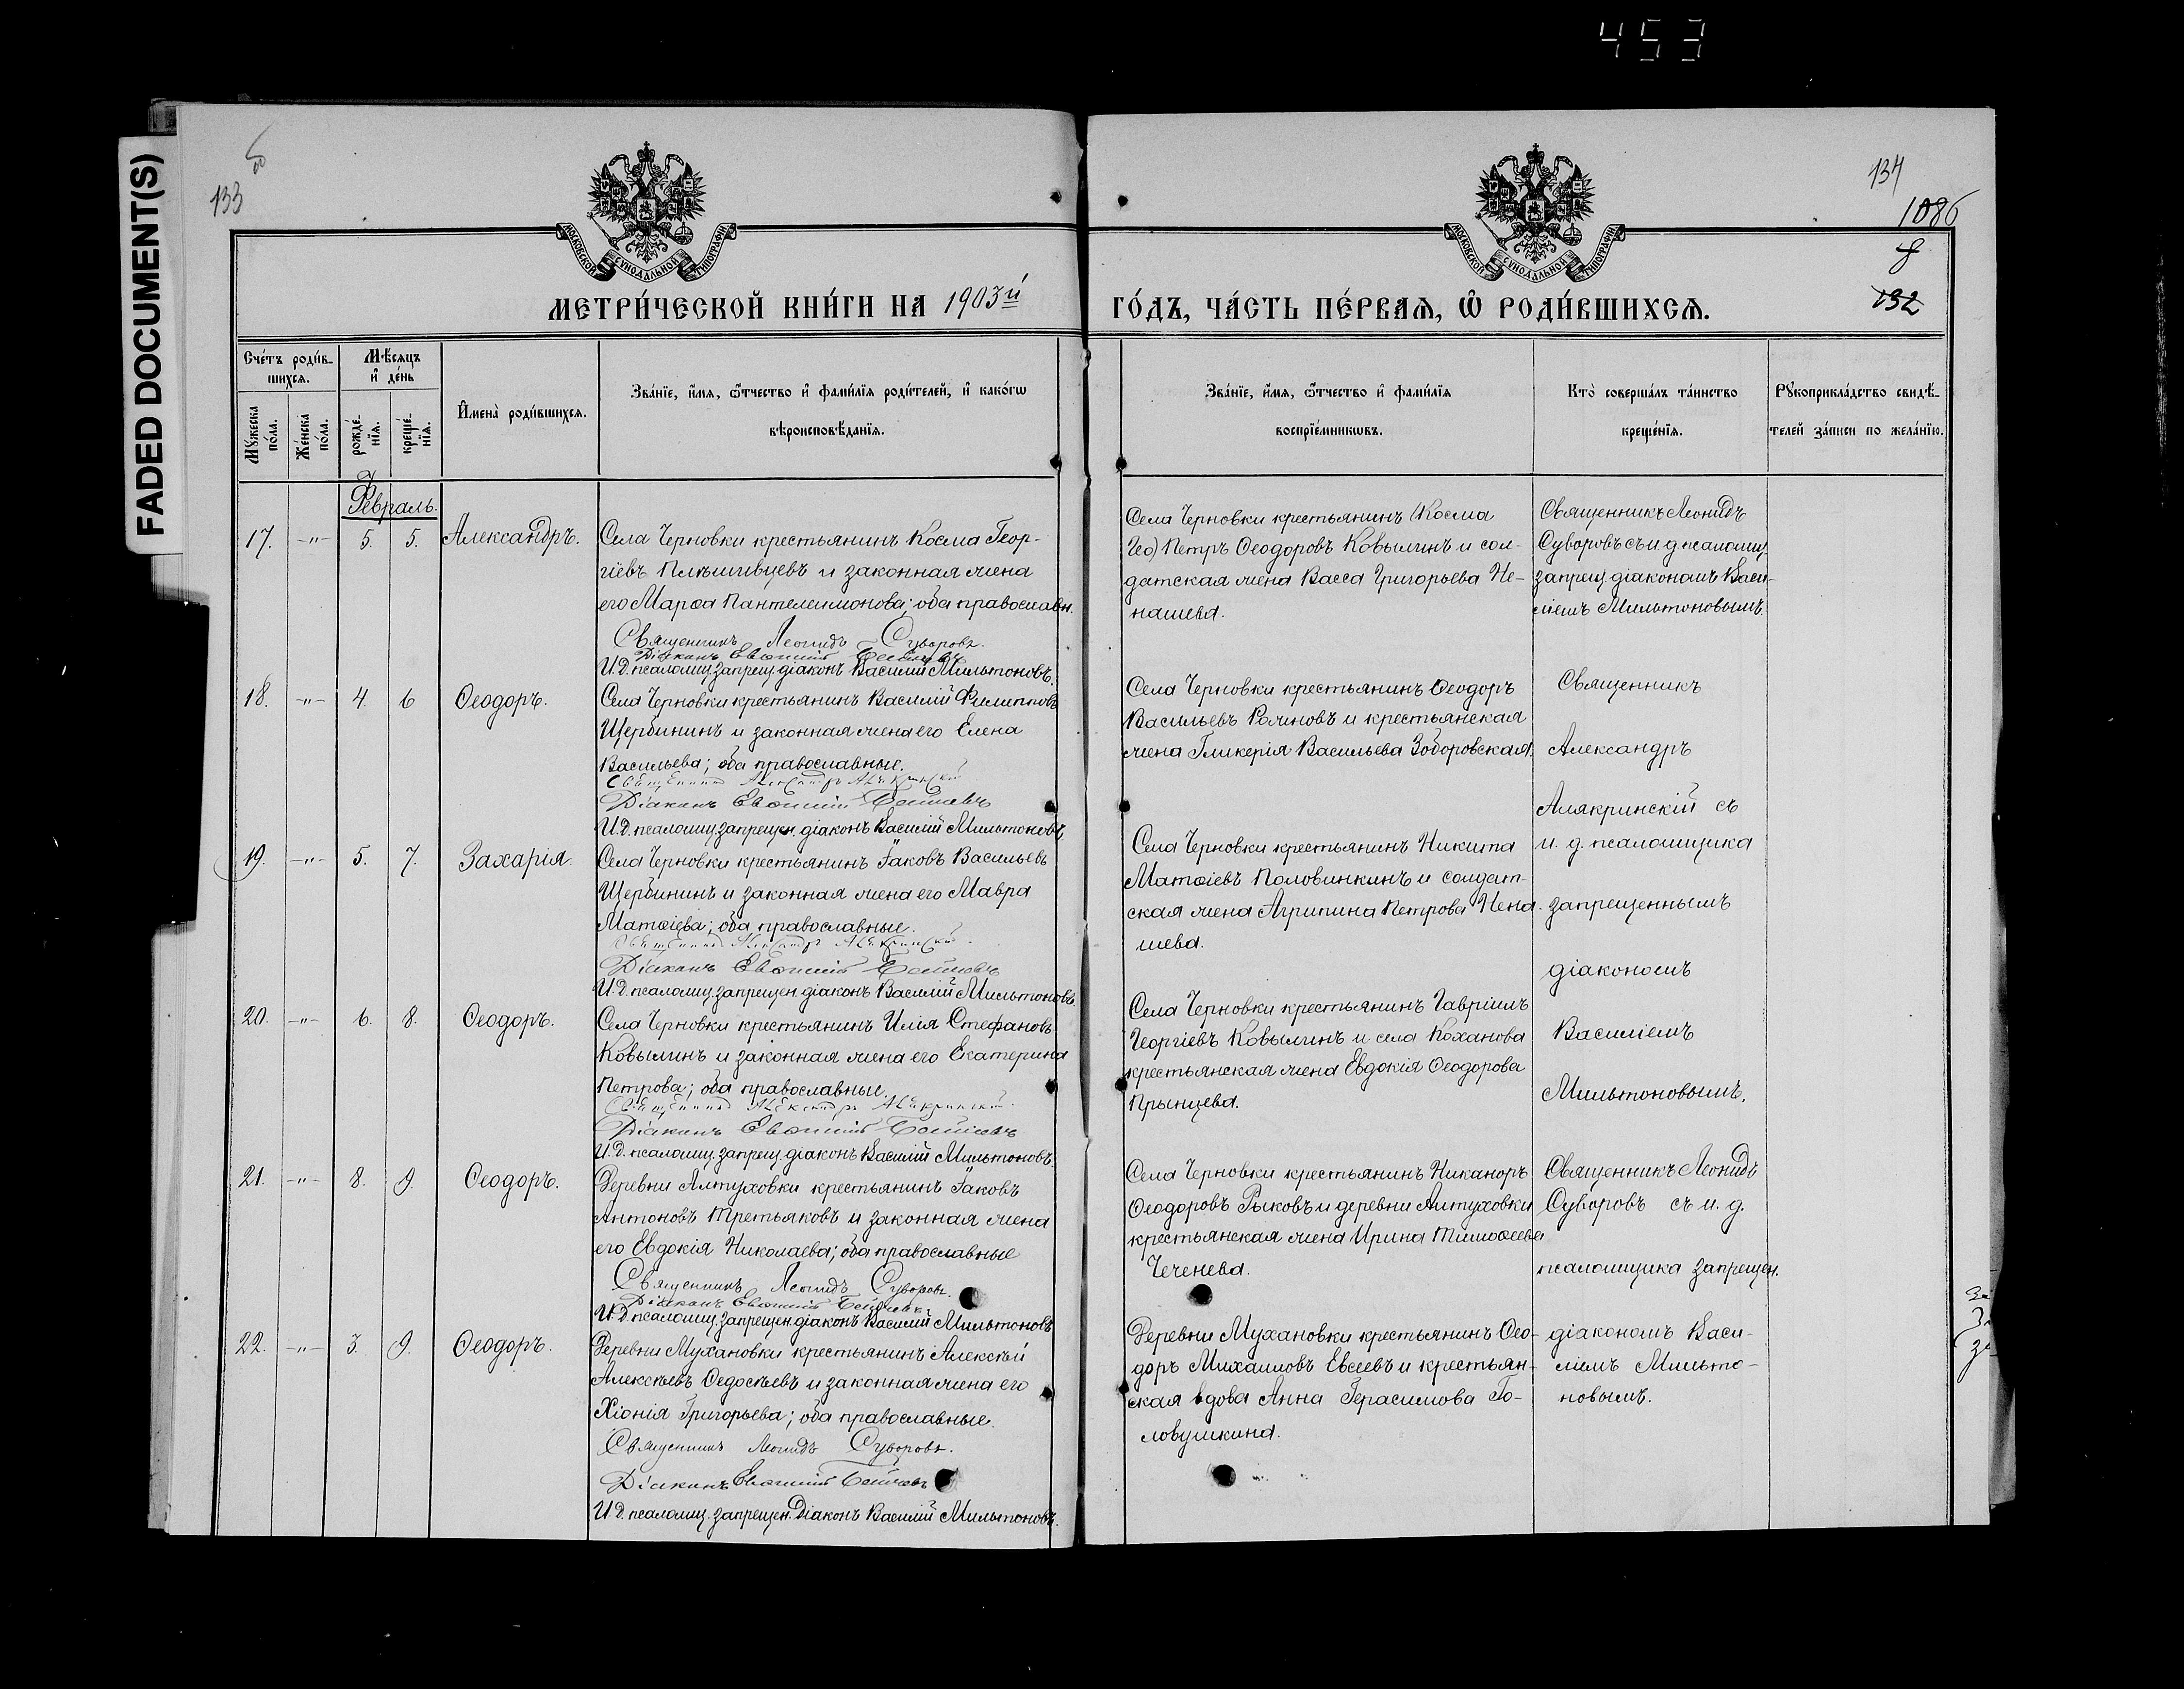 453
FADED DOCUMENT(S)
133
134
1086
8
132
МОСКОВСКОЙ СѴНОДАЛЬНОЙ ТИПОГРАФІИ
МОСКОВСКОЙ СѴНОДАЛЬНОЙ ТИПОГРАФІИ
МЕТРИ́ЧЕСКОЙ КНИ́ГИ НА 1903й
ГО́ДЪ, ЧА́СТЬ ПЕ́РВАѦ, Ѡ҆ РОДИ́ВШИХСѦ.
Сче́тъ роди́в-
шихсѧ.
Мꙋжеска по́ла.
Же́нска по́ла.
Мѣ́сѧцъ
и҆ де́нь
рожде́-
нїѧ.
креще́-
нїѧ.
И҆мена̀ роди́вшихсѧ.
Зва́нїе, и҆́мѧ, ѻ҆́тчество и҆ фами́лїѧ роди́телей, и҆ како́гѡ
вѣроисповѣ́данїѧ.
Зва́нїе, и҆́мѧ, ѻ҆́тчество и҆ фами́лїѧ
воспрїе́мникѡвъ.
Кто̀ соверша́лъ та́инство
креще́нїѧ.
Рꙋкоприкла́дство свидѣ́-
телей за́писи по жела́нїю.
Февраль.
17. -"- 5. 5. Александръ.
Села Черновки крестьянинъ Косма Геор-
гіевъ Плѣшивцевъ и законная жена
его Марѳа Пантелеимонова; оба православн.
Священникъ Леонидъ Суворовъ.
Діаконъ Евѳимій
И.Д. псаломщ. запрещ. діаконъ Василій Мильтоновъ.
Села Черновки крестьянинъ (Косма
Гео) Петръ Ѳеодоровъ Ковылинъ и сол-
датская жена Васса Григорьева Не-
нашева.
Священникъ Леонидъ
Суворовъ съ и д псаломщ.
запрещ. діакономъ Васи-
ліемъ Мильтоновымъ.
18. -"- 4. 6 Ѳеодоръ.
Села Черновки крестьянинъ Василій Филипповъ
Щербининъ и законная жена его Елена
Васильева; оба православные.
Священникъ Александръ Алякринскій
Діаконъ Евѳимій
И.Д. псаломщ. запрещен. діаконъ Василій Мильтоновъ
Села Черновки крестьянинъ Ѳеодоръ
Васильевъ Рожновъ и крестьянская
жена Гликерія Васильева Зоборовская.
Священникъ
Александръ
Алякринскій съ
и. д. псаломщика
запрещеннымъ
діакономъ
Василіемъ
Мильтоновымъ.
19. -"- 5. 7. Захарія.
Села Черновки крестьянинъ Іаковъ Васильевъ
Щербининъ и законная жена его Мавра
Матѳіева; оба православные.
Священникъ Александръ Алякринскій.
Діаконъ Евѳимій
И.Д. псаломщ. запрещен. діаконъ Василій Мильтоновъ.
Села Черновки крестьянинъ Никита
Матѳіевъ Половинкинъ и солдат-
ская жена Агрипина Петрова Нена-
шева.
20. -"- 6. 8. Ѳеодоръ.
Села Черновки крестьянинъ Илія Стефановъ
Ковылинъ и законная жена его Екатерина
Петрова; оба православные.
Священникъ Александръ Алякринскій.
Діаконъ Евѳимій
И.Д. псаломщ. запрещ. діаконъ Василій Мильтоновъ.
Села Черновки крестьянинъ Гавріилъ
Георгіевъ Ковылинъ и села Коханова
крестьянская жена Евдокія Ѳеодорова
Прынцева.
21. -"- 8. 9. Ѳеодоръ.
Деревни Алтуховки крестьянинъ Іаковъ
Антоновъ Третьяковъ и законная жена
его Евдокія Николаева; оба православные
Священникъ Леонидъ Суворовъ.
Діаконъ Евѳимій
И.Д. псаломщ. запрещен. діаконъ Василій Мильтоновъ
Села Черновки крестьянинъ Никаноръ
Ѳеодоровъ Рыковъ и деревни Алтуховки
крестьянская жена Ирина Тимоѳеева
Чеченева.
Священникъ Леонидъ
Суворовъ съ и. д.
псаломщика запрещен.
діакономъ Васи-
ліемъ Мильто-
новымъ.
22. -"- 3. 9. Ѳеодоръ.
Деревни Мухановки крестьянинъ Алексѣй
Алексѣевъ Ѳедосѣевъ и законная жена его
Хіонія Григорьева; оба православные.
Священникъ Леонидъ Суворовъ.
Діаконъ Евѳимій
И.Д. псаломщ. запрещен. Діаконъ Василій Мильтоновъ.
Деревни Мухановки крестьянинъ Ѳео-
доръ Михаиловъ Евсеевъ и крестьян-
ская вдова Анна Герасимова Го-
ловушкина.